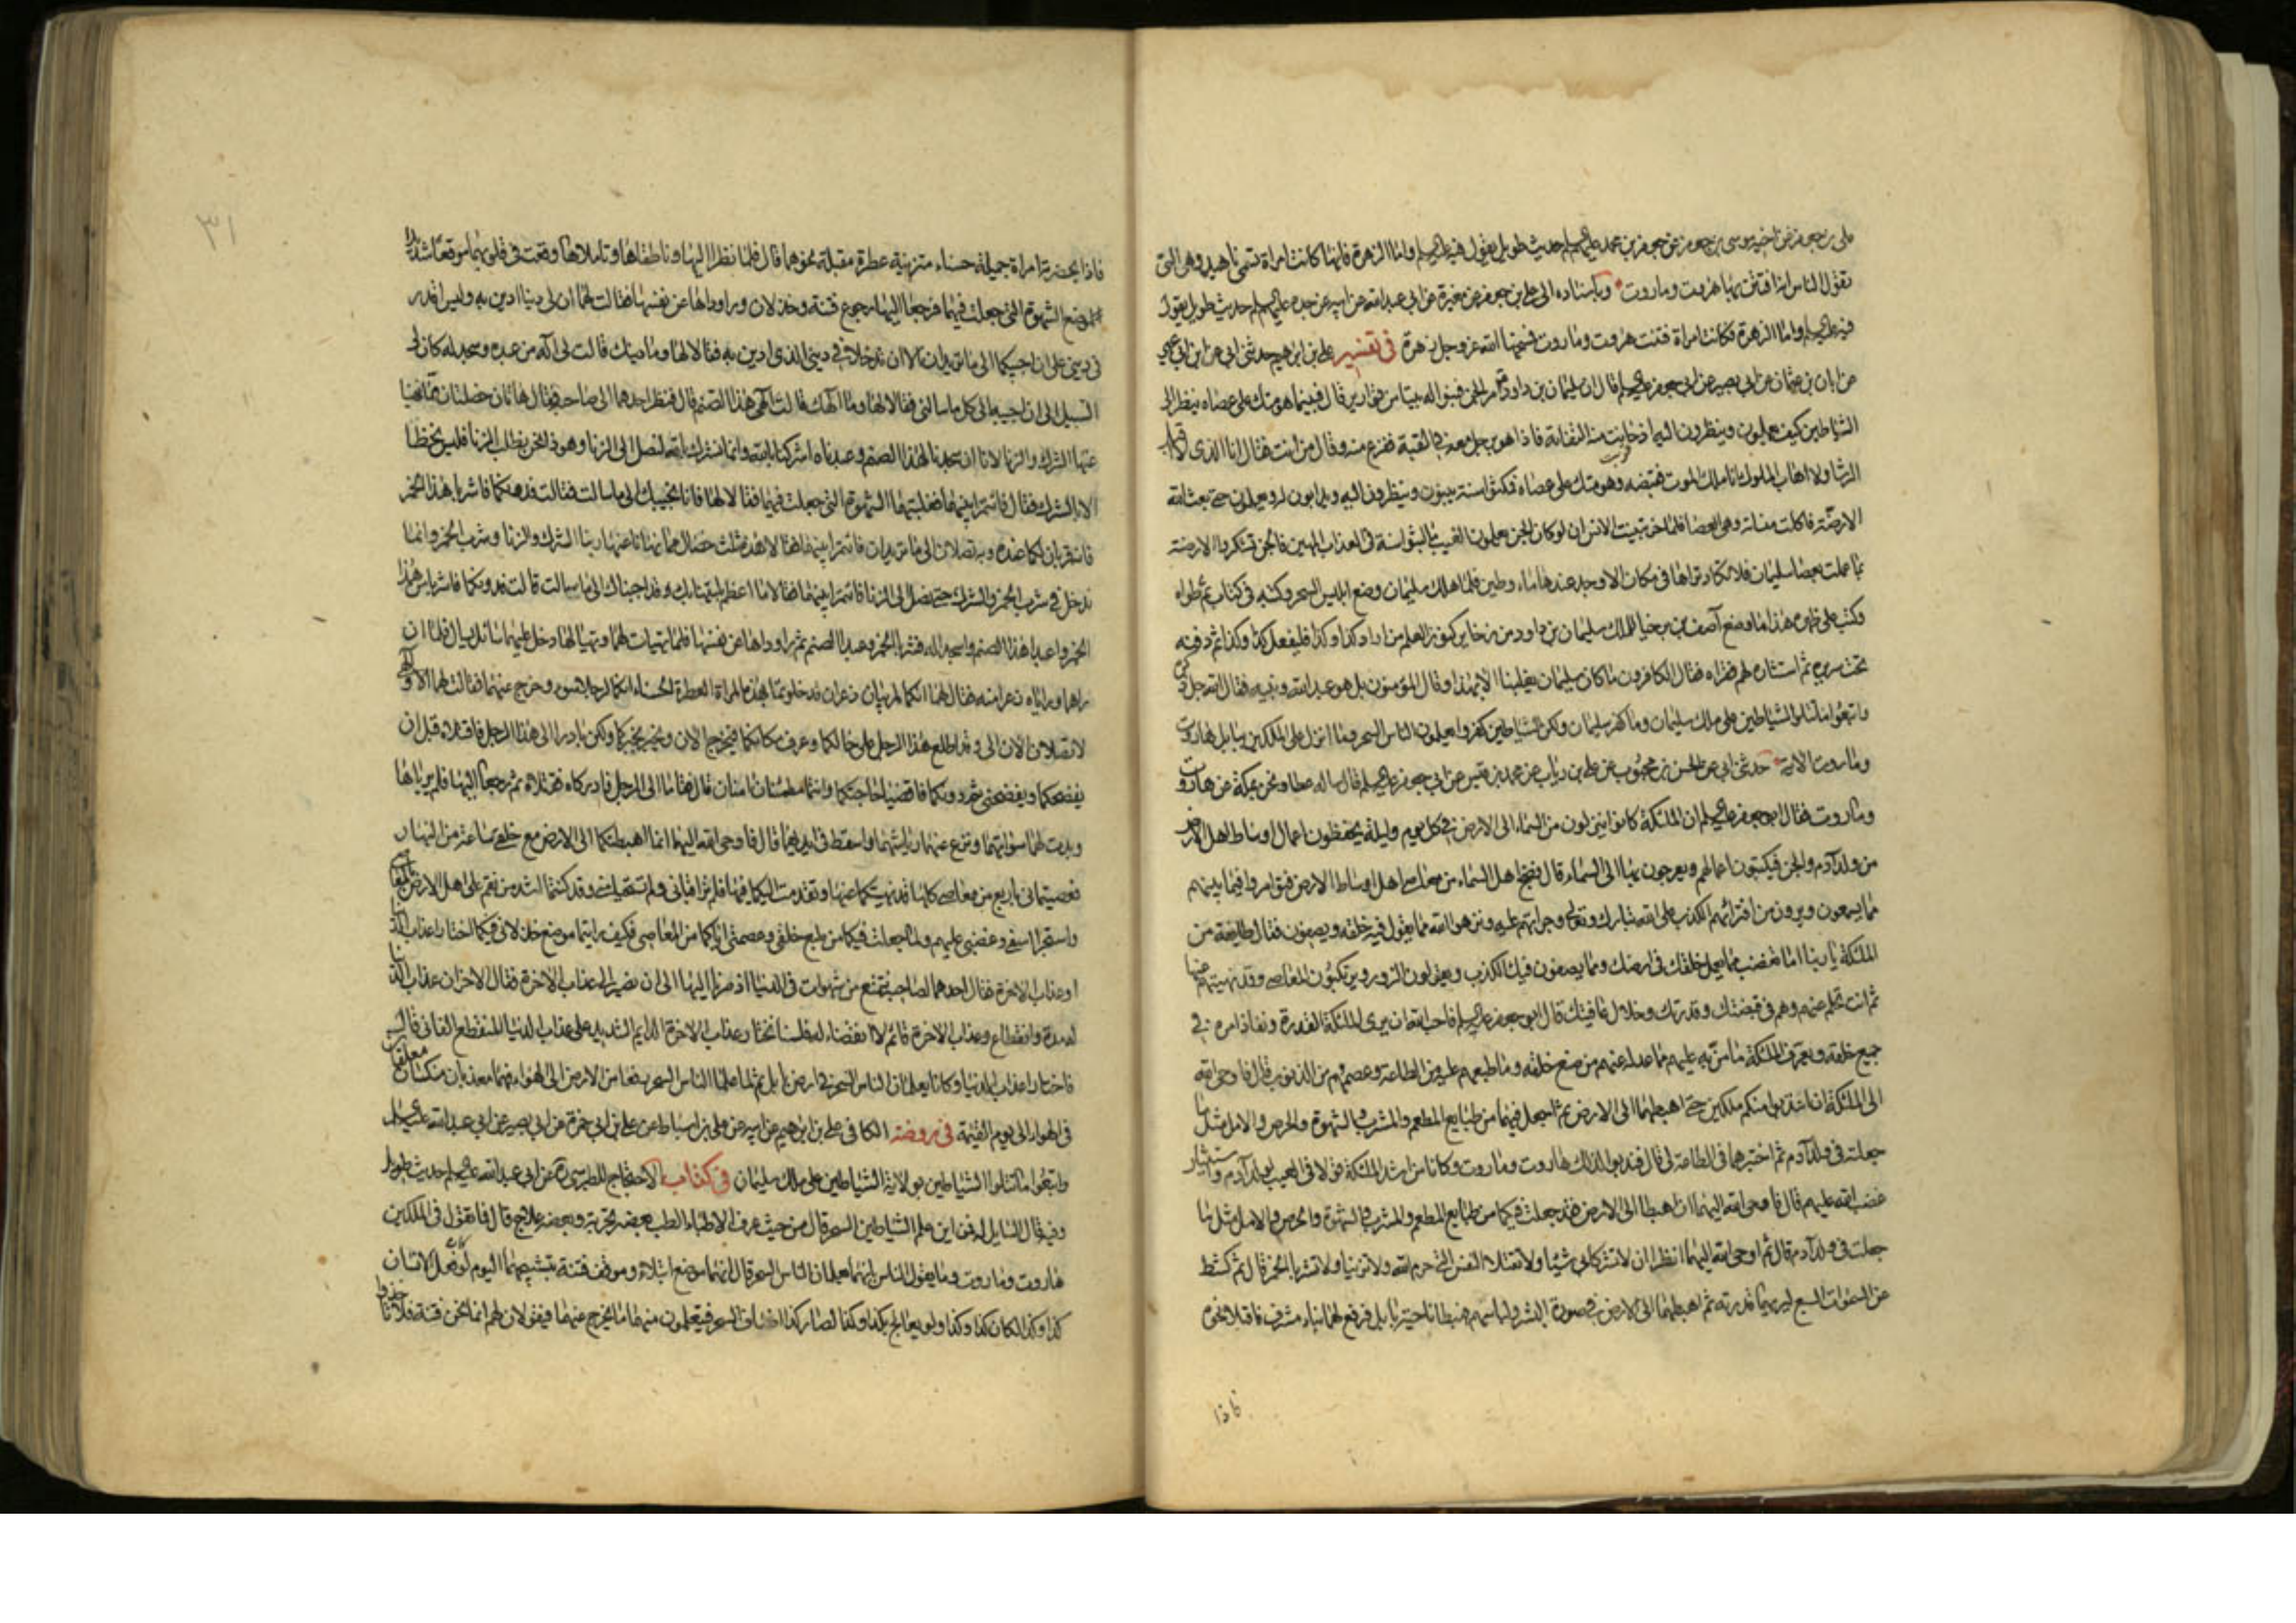 على بن جعفر عن اخيه موسى بن جعفر عن جعفر بن محمد عليهم السلم حديث طويل يقول فيه عليه السلم واما الزهرة فانها كانت امراة تسمى ناهيد وهى التى
تقول الناس انه افتتن بها هروت وماروت وباسناده الى على بن جعفر عن مغيرة عن ابى عبدالله عن ابيه عن جده عليهم السلم حديث طويل يقول
فيه عليه السلم واما الزهرة فكانت امراة فتنت هروت وماروت فمسخها الله عز وجل زهرة فى تفسير على بن ابراهيم حدثنى ابى عن ابن ابى عمير
عن ابان بن عثمان عن ابى بصير عن ابى جعفر عليه السلم قال ان سليمان بن داود امر الجن فبنوا له بيتا من قوارير قال فبينما هو متك على عصاه ينظر الى
الشياطين كيف يعملون وينظرون اليه اذ حانت منه التفاتة فاذا هو برجل معه فى القبة ففزع منه وقال من انت فقال انا الذى لا اقبل
الرشا ولا اهاب الملوك انا ملك الموت فقبضه وهو متك على عصاه فمكثوا سنة يبنون وينظرون اليه ويدابون له ويعملون حتى بعث الله
الارضة فاكلت منساته وهى العصا فلما خر تبينت الانس ان لو كان الجن يعلمون الغيب ما لبثوا سنة فى العذاب المهين فالجن تشكر الارضة
بما عملت بعصا سليمان فلا تكاد تراها فى مكان الا وجد عندها ماء وطين فلما هلك سليمان وضع ابليس السحر وكتبه فى كتاب ثم طواه
وكتب على ظهره هذا ما وضع آصف بن برخيا للملك سليمان بن داود من ذخاير كنوز العلم من اراد كذا وكذا فليفعل كذا وكذا ثم دفنه
تحت سريره ثم استثاره لهم فقراه فقال الكافرون ما كان سليمان يغلبنا الا بهذا وقال المؤمنون بل هو عبدالله ونبيه فقال الله جل ذكره
واتبعوا ما تتلوا الشياطين على ملك سليمان وما كفر سليمان ولكن الشياطين كفروا يعلمون الناس السحر وما انزل على الملكين ببابل هاروت
وماروت الاية حدثنى ابى عن الحسن بن محبوب عن على بن رياب عن محمد بن قيس عن ابى جعفر عليه السلم قال ساله عطا ونحن بمكة عن هاروت
وماروت فقال ابو جعفر عليه السلم ان الملئكة كانوا ينزلون من السماء الى الارض فى كل يوم وليلة يحفظون اعمال اوساط اهل الارض
من ولد آدم والجن فيكتبون اعمالهم ويعرجون بها الى السماء قال فضج اهل السماء من معاصى اهل اوساط الارض فتوامروا فيما بينهم
مما يسمعون ويرون من افترائهم الكذب على الله تبارك وتعالى وجراتهم عليه ونزهوا الله مما يقول فيه خلقه ويصفون فقال طايفة من
الملئكة يا ربنا اما تغضب مما يعمل خلقك فى ارضك ومما يصفون فيك الكذب ويقولون الزور ويرتكبون المعاصى وقد نهيتهم عنها
ثم انت تحلم عنهم وهم فى قبضتك وقدرتك وخلال عافيتك قال ابو جعفر عليه السلم فاحب الله ان يرى الملئكة القدرة ونفاذ امره فى
جميع خلقه ويعرف الملئكة ما من به عليهم مما عدله عنهم من صنع خلقه وما طبعهم عليه من الطاعة وعصمهم من الذنوب قال فاوحى الله
الى الملئكة ان انتدبوا منكم ملكين حتى اهبطهما الى الارض ثم اجعل فيهما من طبايع المطعم والمشرب والشهوة والحرص والامل مثل ما
جعلته فى ولد آدم ثم اختبرهما فى الطاعة لى قال فندبوا لذلك هاروت وماروت وكانا من اشد الملئكة قولا فى العيب لولد آدم واستيثار
غضب الله عليهم قال فاوحى الله اليهما ان اهبطا الى الارض فقد جعلت فيكما من طبايع المطعم والمشرب والشهوة والحرص والامل مثل ما
جعلت فى ولد آدم قال ثم اوحى الله اليهما انظرا ان لا تشركا بى شيئا ولا تقتلا النفس التى حرم الله ولا تزنيا ولا تشربا الخمر قال ثم كشط
عن السموات السبع ليريهما قدرته ثم اهبطهما الى الارض فى صورة البشر ولباسهم فهبطا ناحية بابل فرفع لهما بناء مشرف فاقبلا نحوه
فاذا
٣١
فاذا بحضرته امراة جميلة حسناء متزينة عطرة مقبلة نحوهما قال فلما نظرا اليها وناطقاها وتاملاها وقعت فى قلوبهما موقعا شديدا
لموضع الشهوة التى جعلت فيهما فرجعا اليها رجوع فتنة وخذلان وراوداها عن نفسها فقالت لهما ان لى دينا ادين به وليس اقدر
فى دينى على ان اجيبكما الى ما تريدان الا ان تدخلا فى دينى الذى ادين به فقالا لها وما دينك قالت لى آله من عبده وسجد له كان لى
السبيل الى ان اجيبه الى كل ما سالنى فقالا لها وما آلهك قالت آلهى هذا الصنم قال فنظر احدهما الى صاحبه فقال هاتان خصلتان مما نهينا
عنها الشرك والزنا لانا ان سجدنا لهذا الصنم وعبدناه اشركنا بالله وانما نشرك بالله لنصل الى الزنا وهو ذا نحن نطلب الزنا فليس نحظا
الا بالشرك فقال فائتمرا بينهما فغلبتهما الشهوة التى جعلت فيهما فقالا لها فانا نجيبك الى ما سالت فقالت فدونكما فاشربا هذا الخمر
فانه قربان لكما عنده وبه تصلان الى ما تريدان فائتمرا بينهما فقالا هذه ثلث خصال مما نهانا عنها ربنا الشرك والزنا وشرب الخمر وانما
ندخل فى شرب الخمر والشرك حتى نصل الى الزنا فائتمرا بينهما فقالا ما اعظم البلية بك وقد اجبناك الى ما سالت قالت فدونكما فاشربا من هذا
الخمر واعبدا هذا الصنم واسجدا له فشربا الخمر وعبدا الصنم ثم راوداها عن نفسها فلما تهيات لهما وتهيا لها دخل عليهما سائل يسال فلما ان
راهما وراياه ذعرا منه فقال لهما انكما لمريبان ذعران قد خلوتما بهذه المراة العطرة الحسناء انكما لرجلا سوء وخرج عنهما فقالت لهما لا وآلهى
لا تصلان الان الى وقد اطلع هذا الرجل على حالكما وعرف مكانكما فيخرج الان ويخبر بخبركما ولكن بادرا الى هذا الرجل فاقتلاه قبل ان
يفضحكما ويفضحنى ثم دونكما فاقضيا حاجتكما وانتما مطمئنان امنان قال فقاما الى الرجل فادركاه فقتلاه ثم رجعا اليها فلم يرياها
وبدت لهما سواتهما ونزع عنهما رياشهما واسقط فى ايديهما قال فاوحى الله اليهما انما اهبطتكما الى الارض مع خلقى ساعة من النهار
فعصيتمانى باربع من معاصى كلها قد نهيتكما عنها وتقدمت اليكما فيها فلم تراقبانى ولم تستحييا منى وقد كنتما اشد من نقم على اهل الارض المعاصى
واستجرا اسفى وغضبى عليهم ولما جعلت فيكما من طبع خلقى وعصمتى اياكما من المعاصى فكيف رايتما موضع خذلانى فيكما اختارا عذاب الدنيا
او عذاب الاخرة فقال احدهما لصاحبه نتمتع من شهوات فى الدنيا اذ صرنا اليها الى ان نصير الى عذاب الاخرة فقال الاخر ان عذاب الدنيا
له مدة وانقطاع وعذاب الاخرة قائم لا انقضاء له فلسنا نختار عذاب الاخرة الدايم الشديد على عذاب الدنيا المنقطع الفانى قال
فاختارا عذاب الدنيا وكانا يعلمان الناس السحر فى ارض بابل ثم لما علما الناس السحر رفعا من الارض الى الهواء فهما معذبان منكسان معلقان
فى الهواء الى يوم القيمة فى روضة الكافى على بن ابراهيم عن ابيه عن على بن اسباط عن على بن ابى حمزة عن ابى بصير عن ابى عبدالله عليه السلم
واتبعوا ما تتلوا الشياطين بولاية الشياطين على ملك سليمان فى كتاب الاحتجاج للطبرسى ره عن ابى عبدالله عليه السلم حديث طويل
وفيه قال السايل له فمن اين علم الشياطين السحر قال من حيث عرف الاطباء الطب بعضه تجربة وبعضه علاج قال فما تقول فى الملكين
هاروت وماروت وما يقول الناس بانهما يعلمان الناس السحر قال انهما موضع ابتلاء وموقف فتنة تسبيحهما اليوم لو فعل الانسان
كذا وكذا لكان كذا وكذا ولو يعالج بكذا وكذا لصار كذا اصناف السحر فيتعلمون منهما ما يخرج عنهما فيقولان لهم انما نحن فتنة فلا تاخذوا